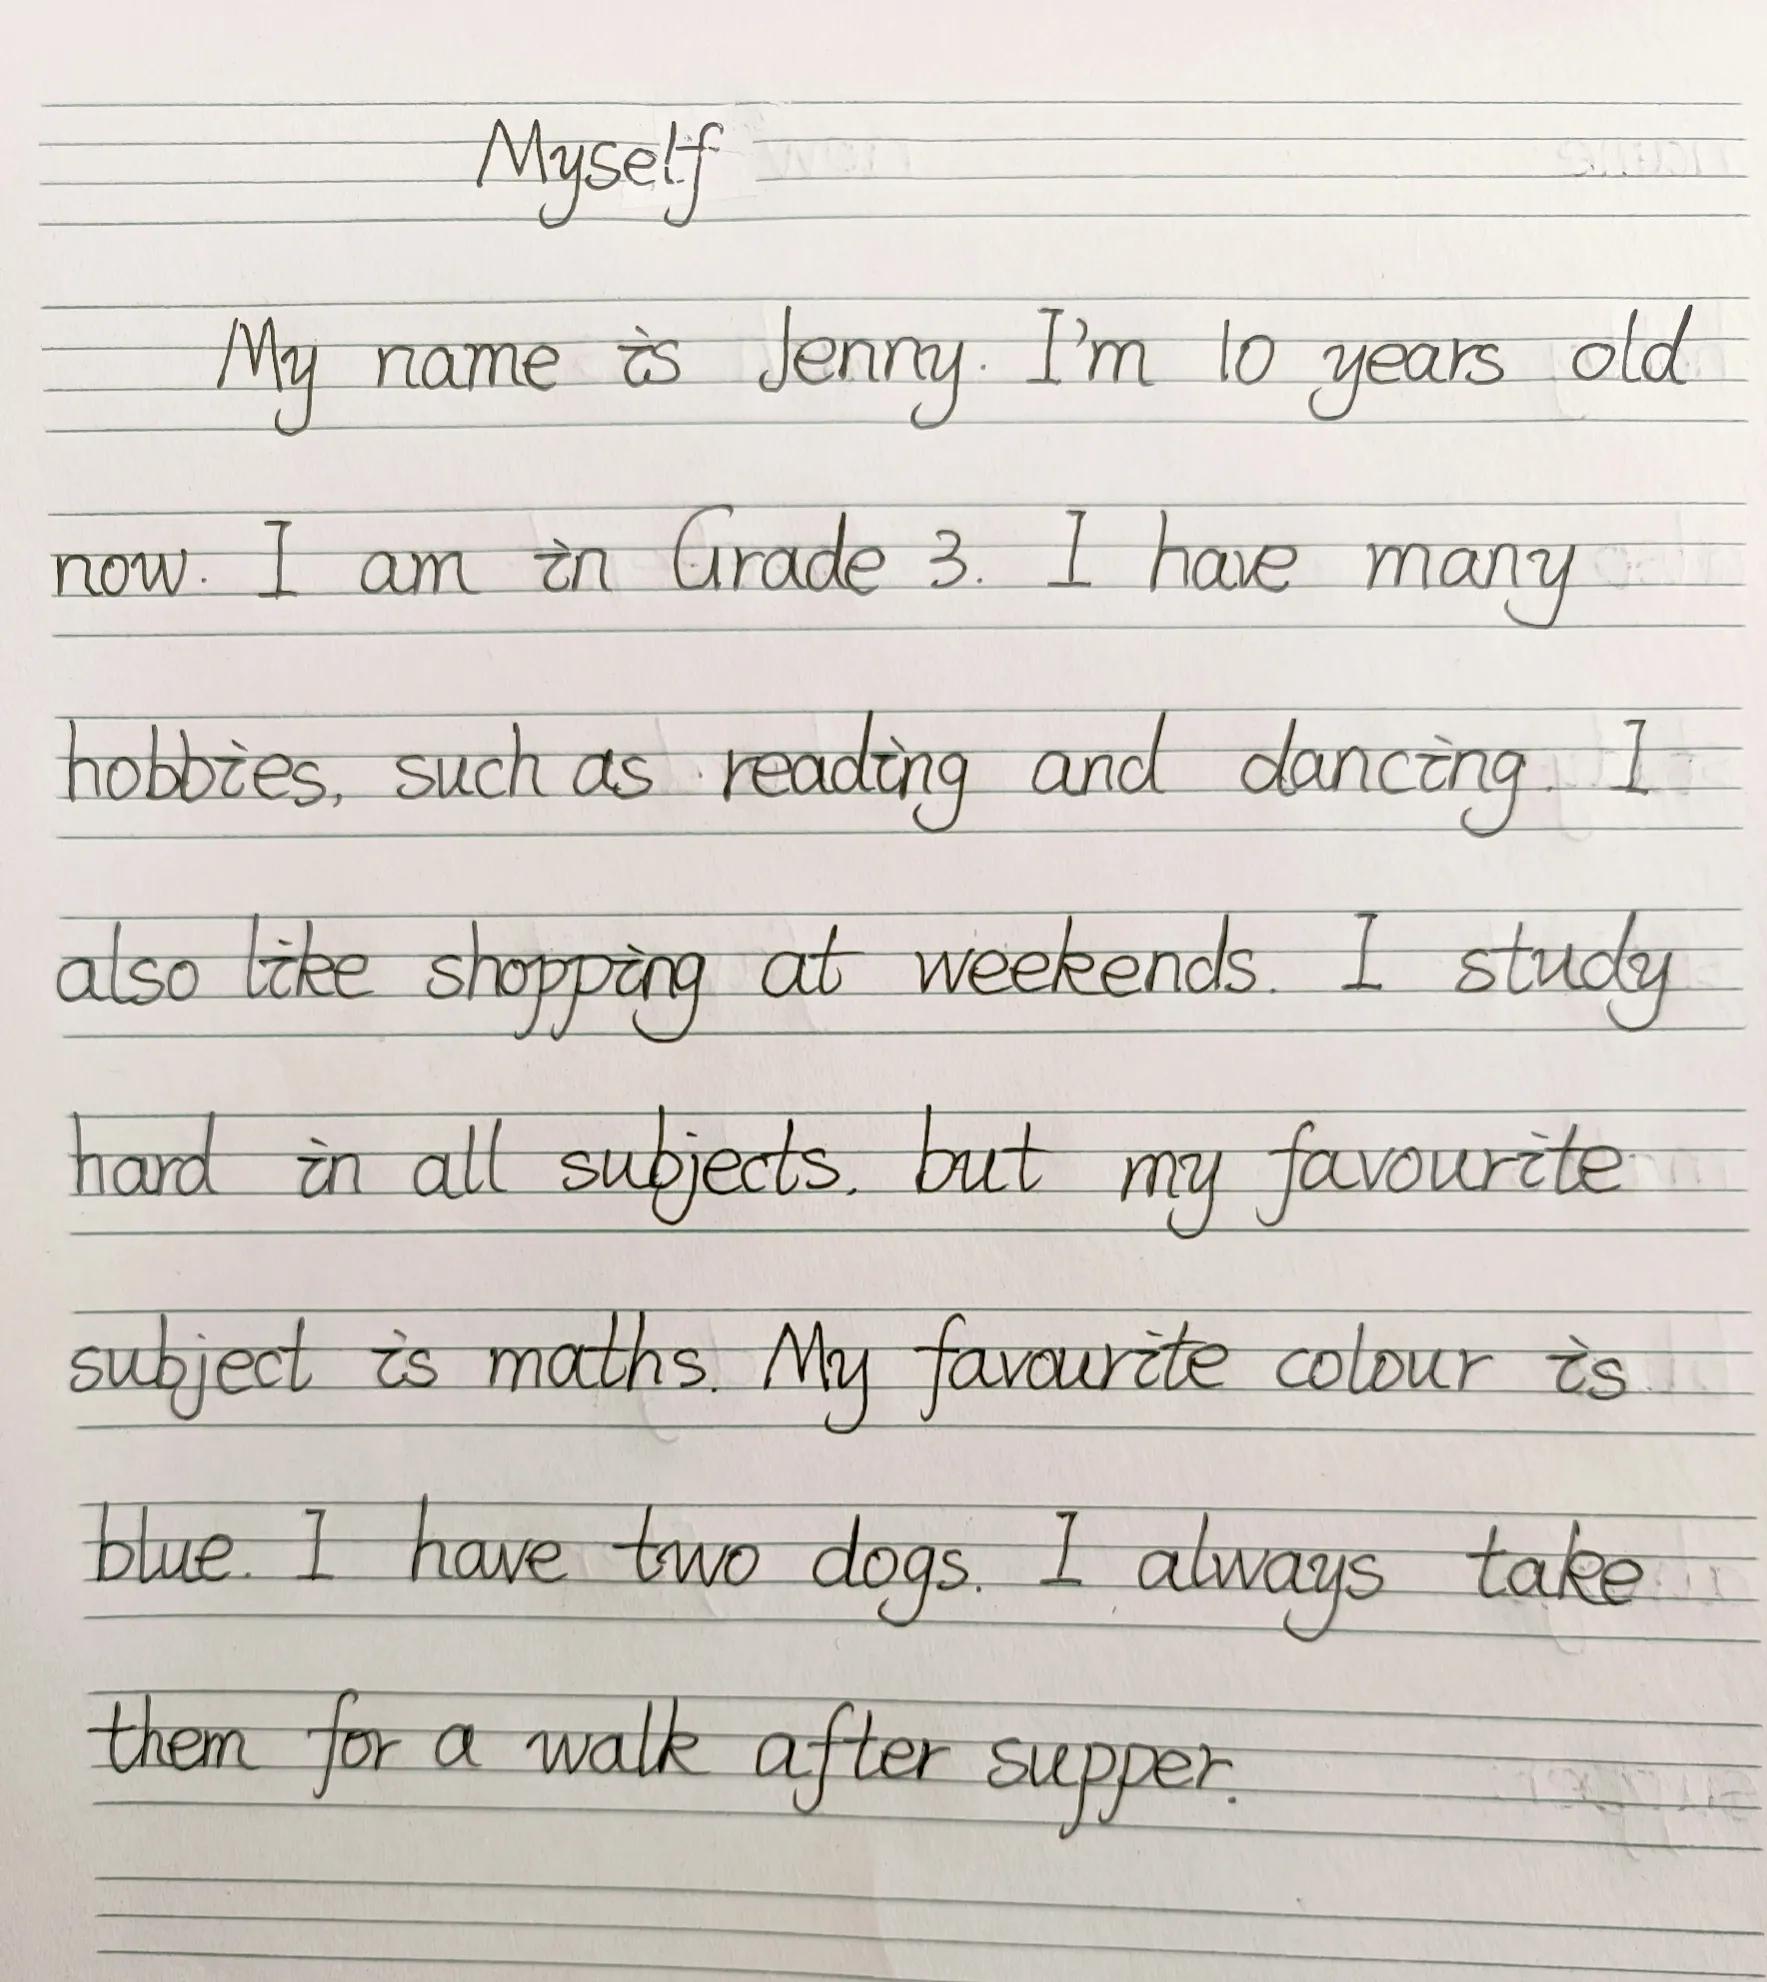 Myself
My name is Jenny. I'm 10 years old
now. I am in Grade 3. I have many
hobbies, such as reading and dancing. I
also like shopping at weekends. I study
hard in all subjects, but my favourite
subject is maths. My favourite colour is
blue. I have two dogs. I always take
them for a walk after supper.